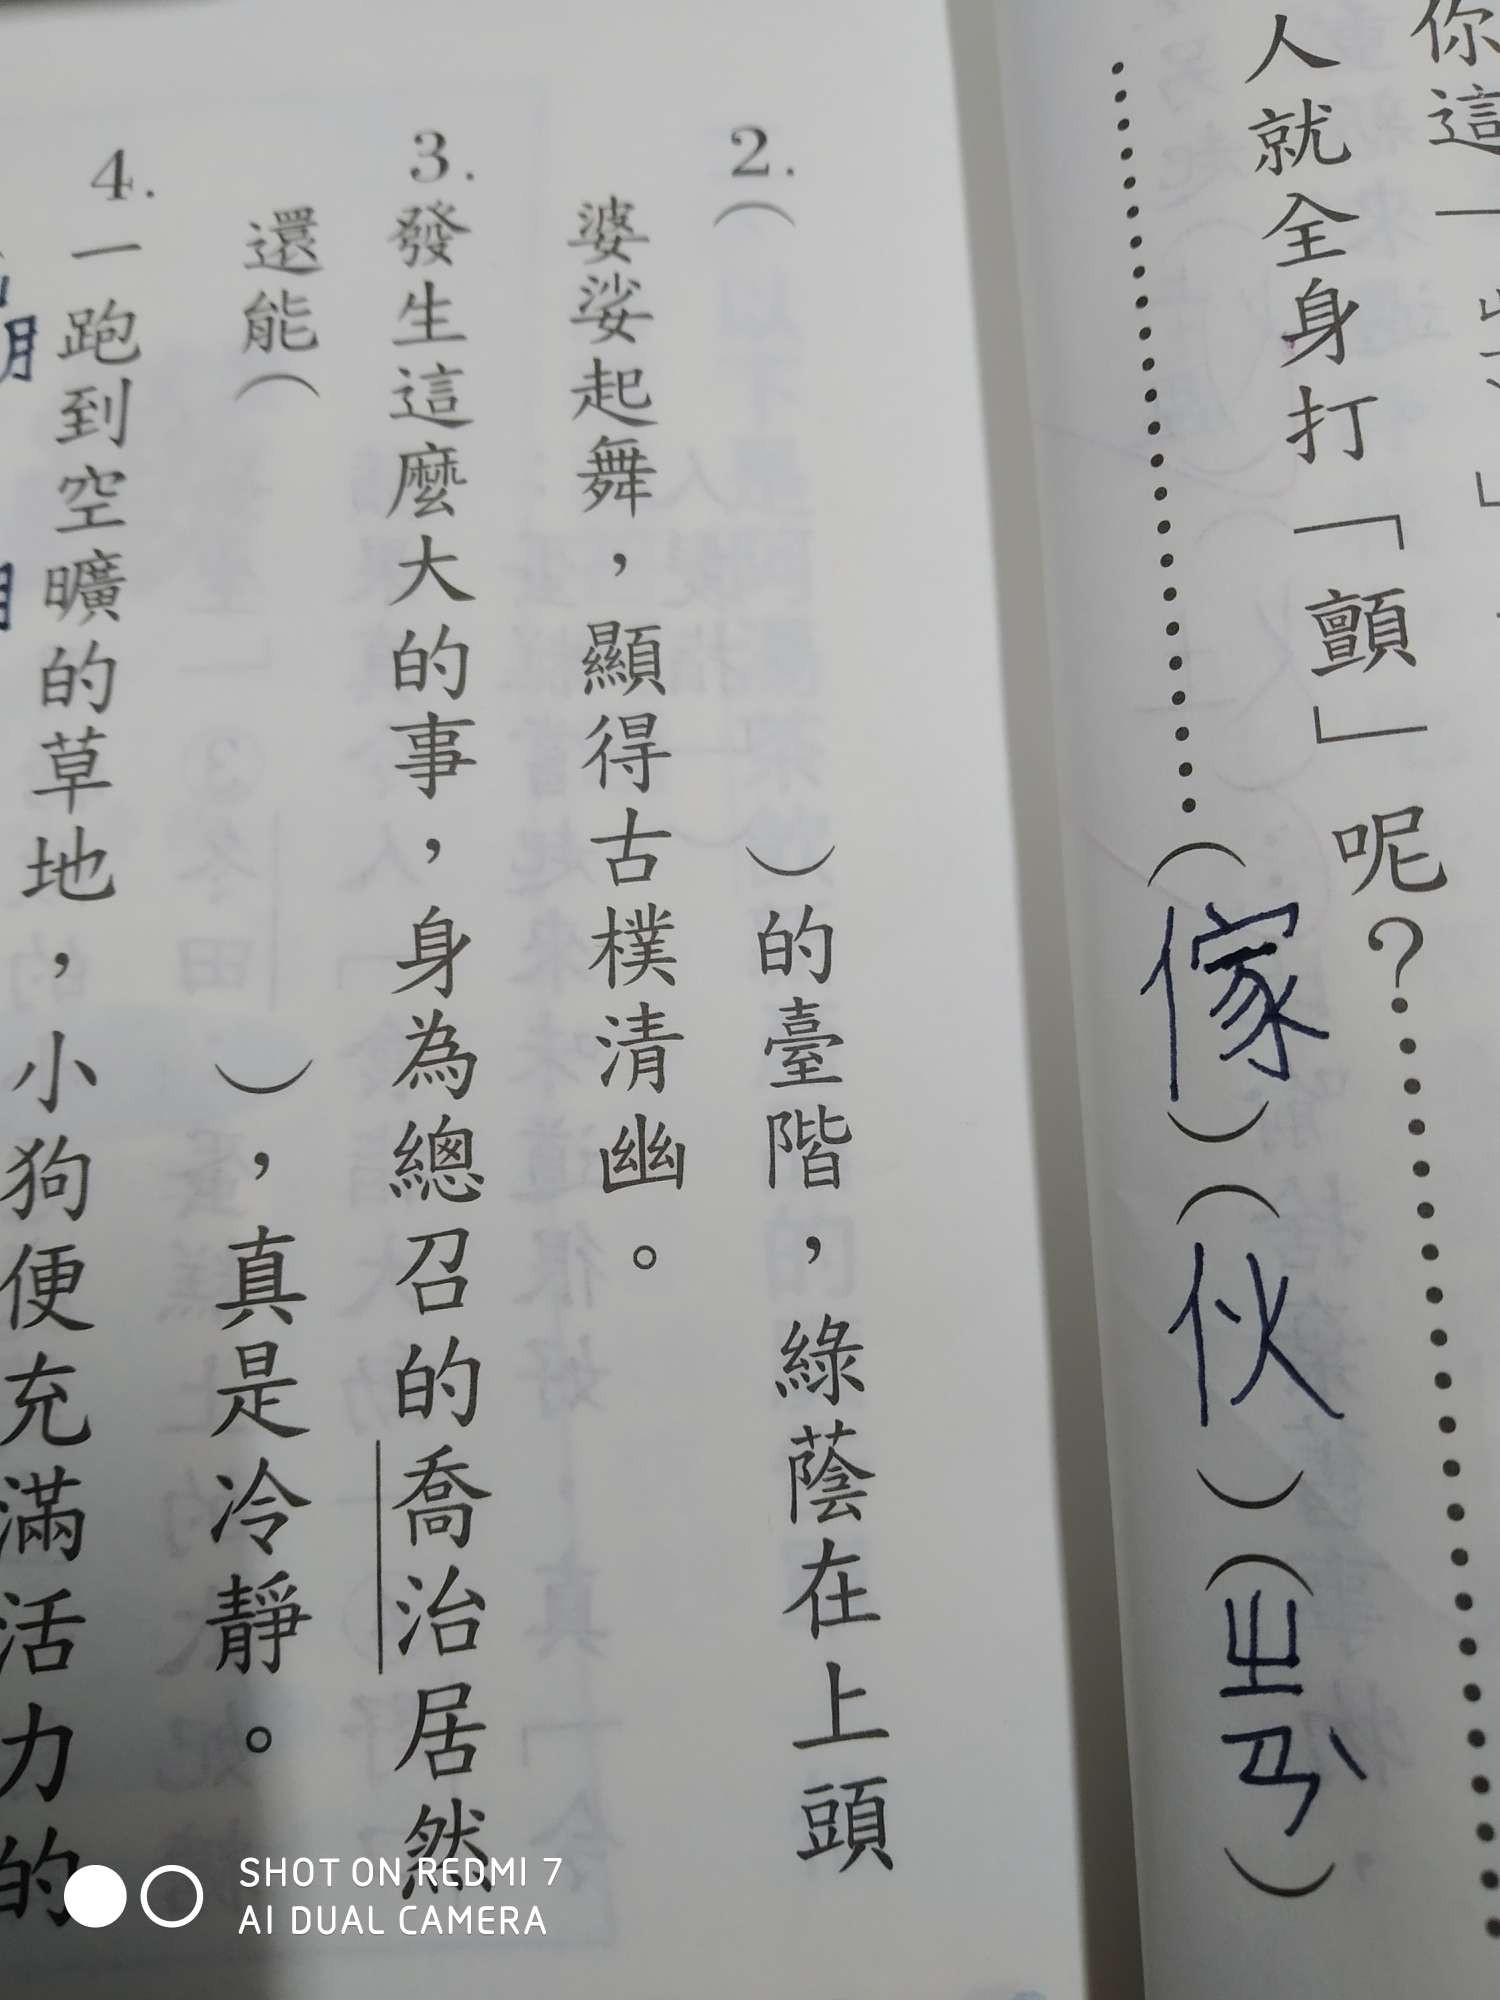 你這
人就全身打「顫」呢?
(傢)(伙)(ㄓㄢˋ)
2.(　)的臺階,綠蔭在上頭
婆娑起舞,顯得古樸清幽。
3.發生這麼大的事,身為總召的喬治居然
還能(　),真是冷靜。
4.一跑到空曠的草地,小狗便充滿活力的
SHOT ON REDMI 7
AI DUAL CAMERA